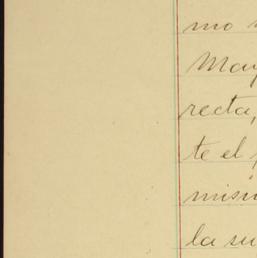 mo
May
recta,
te el
mism
la su